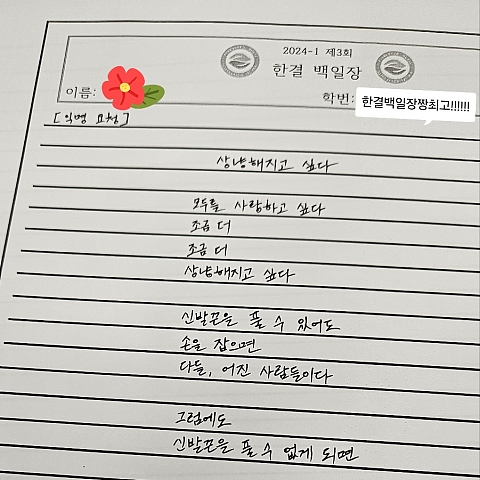 2024-1 제3회
한결 백일장
이름:
학번:
한결백일장짱최고!!!!!!
[익명 요청]
상냥해지고 싶다
모두를 사랑하고 싶다
조금 더
조금 더
상냥해지고 싶다
신발끈을 풀 수 있어도
손을 잡으면
다들, 어진 사람들이다
그럼에도
신발끈을 풀 수 없게 되면